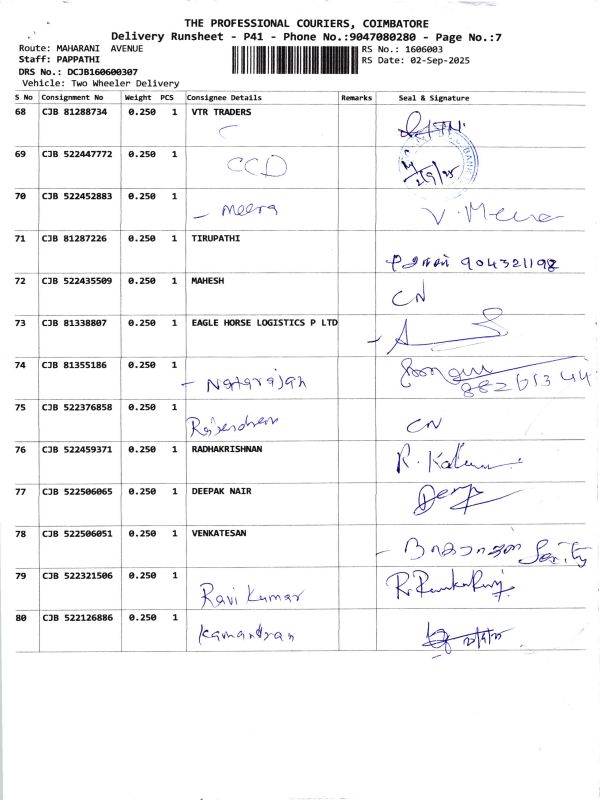 THE PROFESSIONAL COURIERS, COIMBATORE
Delivery Runsheet - P41 - Phone No.:9047080280 - Page No.:7
Route: MAHARANI AVENUE
RS No.: 1606003
Staff: PAPPATHI
RS Date: 02-Sep-2025
DRS No.: DCJB160600307
Vehicle: Two Wheeler Delivery
S No Consignment No Weight PCS Consignee Details Remarks Seal & Signature
68 CJB 81288734 0.250 1 VTR TRADERS
69 CJB 522447772 0.250 1 CCD 2/9/25
70 CJB 522452883 0.250 1 - Meera V. Meena
71 CJB 81287226 0.250 1 TIRUPATHI 904321198
72 CJB 522435509 0.250 1 MAHESH CN
73 CJB 81338807 0.250 1 EAGLE HORSE LOGISTICS P LTD
74 CJB 81355186 0.250 1 - Natarajan
75 CJB 522376858 0.250 1 Rajendren CN
76 CJB 522459371 0.250 1 RADHAKRISHNAN
77 CJB 522506065 0.250 1 DEEPAK NAIR
78 CJB 522506051 0.250 1 VENKATESAN
79 CJB 522321506 0.250 1 Ravi Kumar
80 CJB 522126886 0.250 1